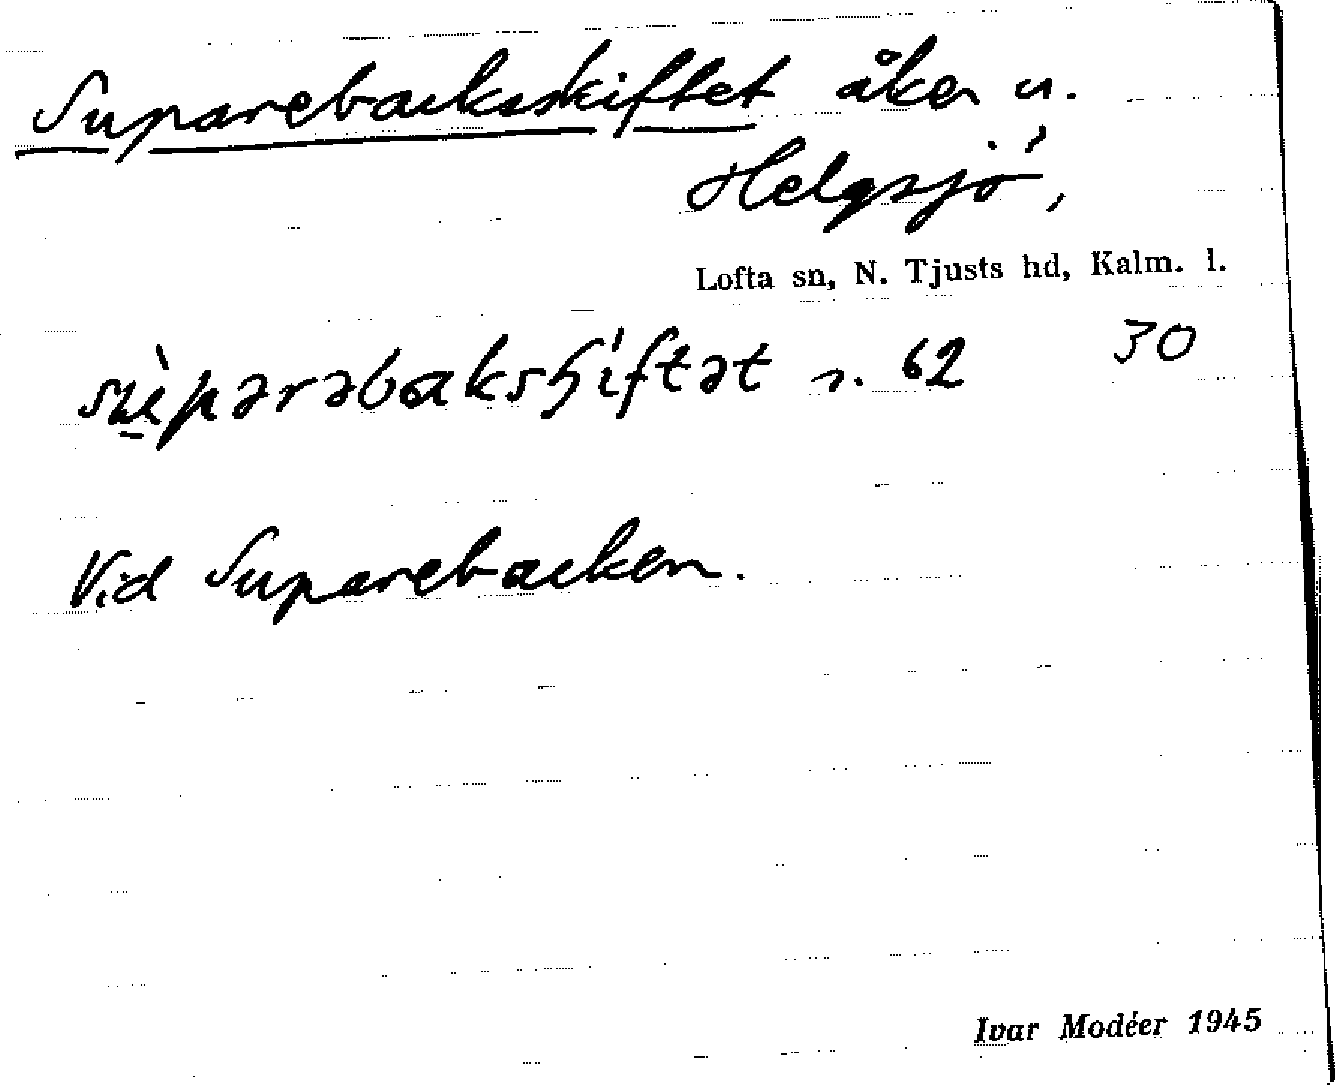 Suparebacksskiftet åker u.
Helgsjö,
Lofta sn, N. Tjusts hd, Kalm. l.
30
s. 62
Vid Suparebacken.
Ivar Modéer 1945